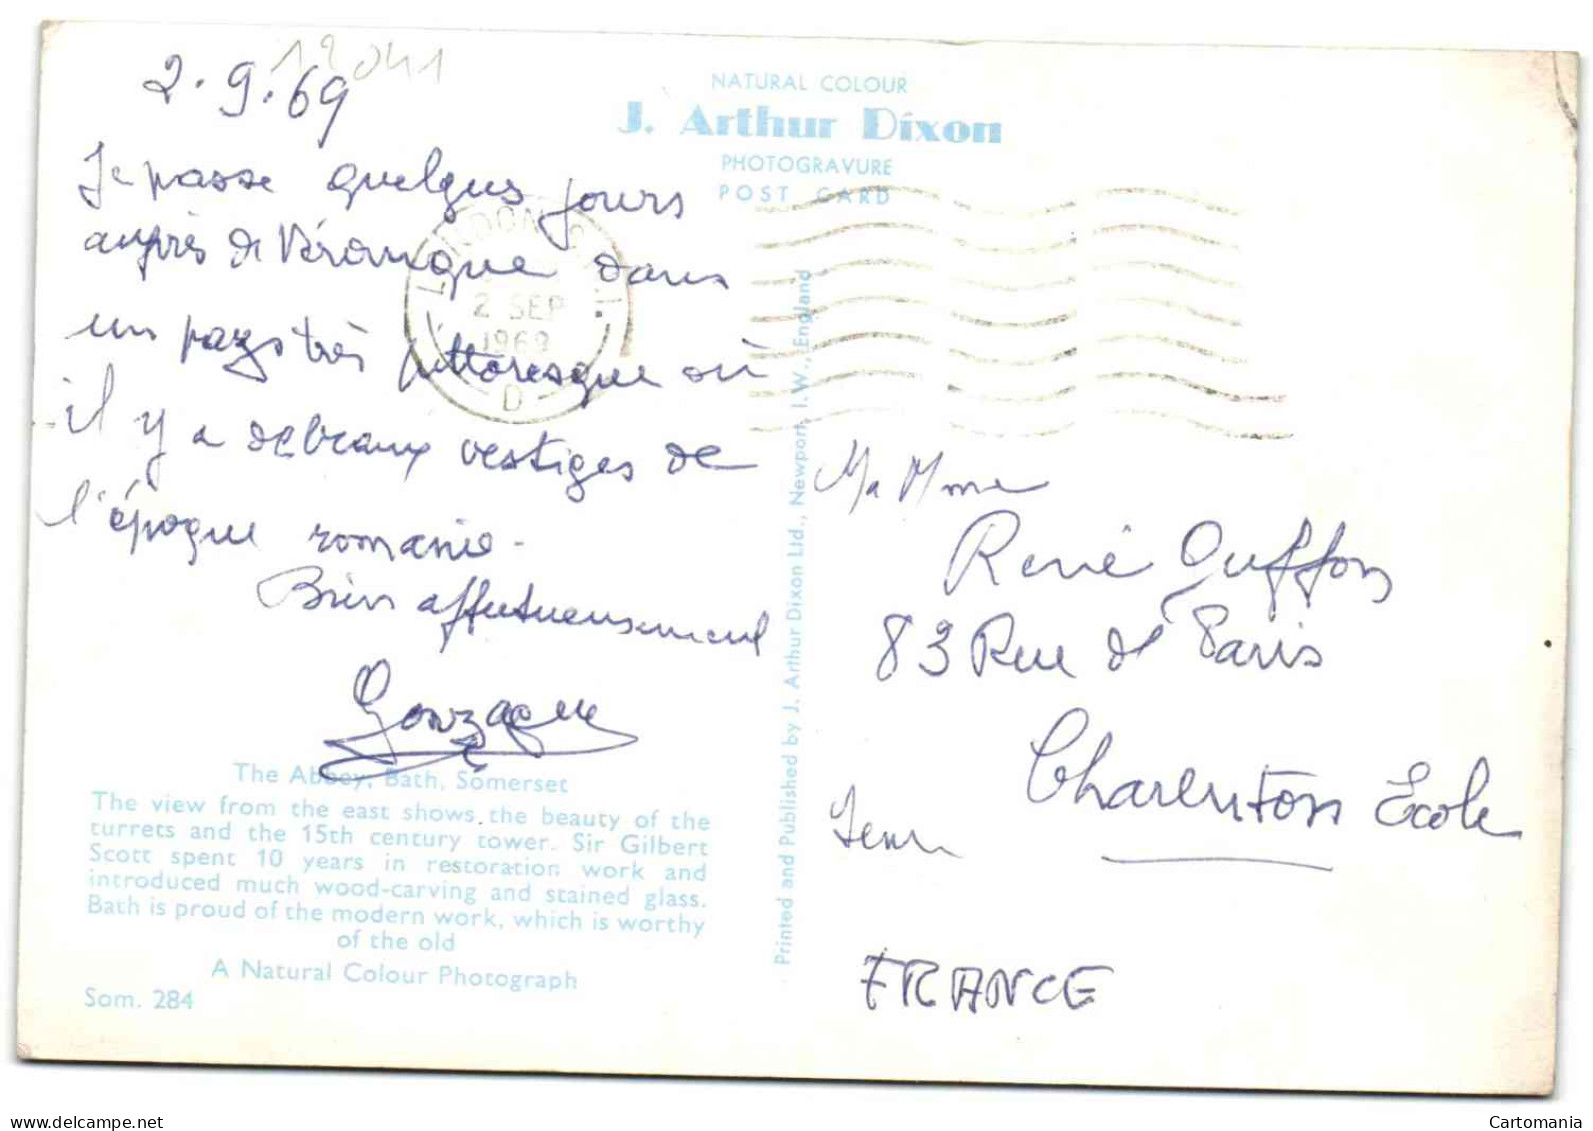 12041
2.9.69
Je passe quelques jours
auprès de Véronique dans
un pays très pittoresque où
il y a de beaux vestiges de
l'époque romaine.
Bien affectueusement
Gonzague
The Abbey, Bath, Somerset
The view from the east shows the beauty of the
turrets and the 15th century tower. Sir Gilbert
Scott spent 10 years in restoration work and
introduced much wood-carving and stained glass.
Bath is proud of the modern work, which is worthy
of the old
A Natural Colour Photograph
Som. 284
NATURAL COLOUR
J. Arthur Dixon
PHOTOGRAVURE
POST CARD
LONDON S.W.1.
2 SEP
1969
D
Printed and Published by J. Arthur Dixon Ltd., Newport, I.W., England
Mme
René Guffon
83 Rue de Paris
Charenton École
FRANCE
Cartomania